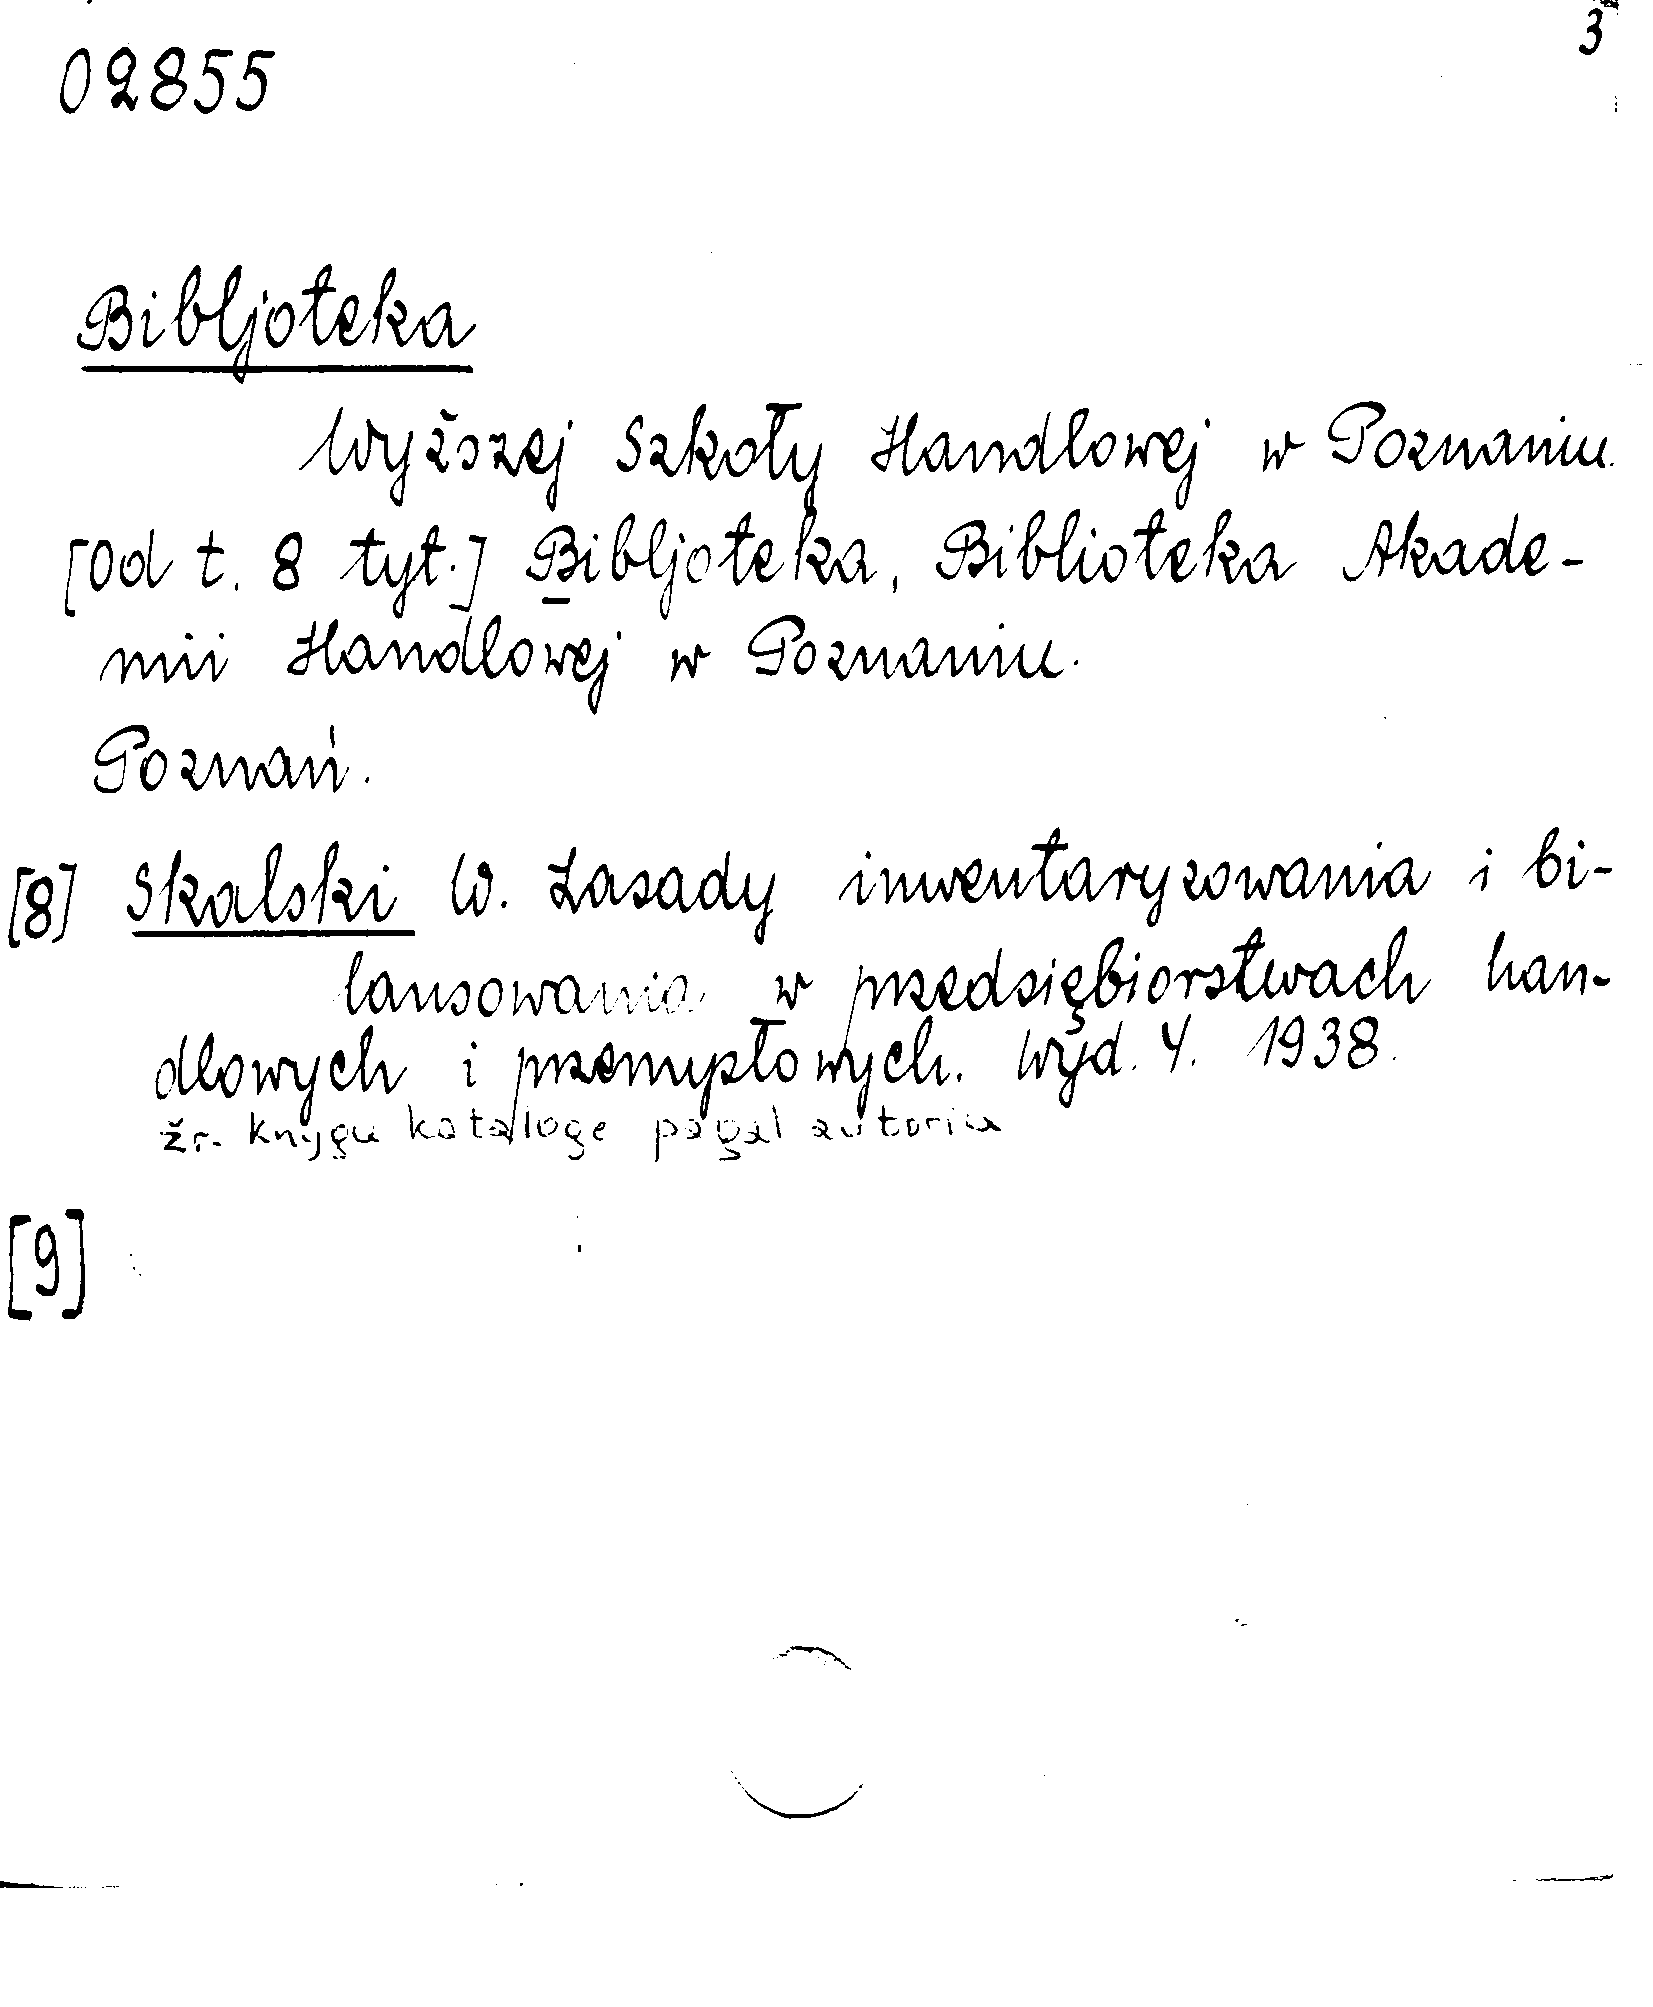 3
02855
Bibljoteka
Wyższej Szkoły Handlowej w Poznaniu.
[Od t. 8 tyt.] Bibljoteka, Biblioteka Akade-
mii Handlowej w Poznaniu.
Poznań.
[8] Skalski W. Zasady inwentaryzowania i bi-
lansowania w przedsiębiorstwach han-
dlowych i przemysłowych. Wyd. 4. 1938.
žr. knygų kataloge pagal autorių
[9]